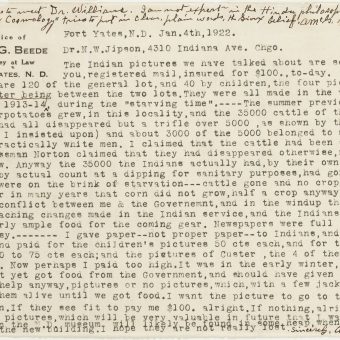 to meet Dr. Williams. I am not expert in the Hindu philosop
Cosmology tries to put in clear plain words the Sioux belief
ffice of Fort Yates, N.D. Jan. 4th, 1922.
G. BEEDE Dr. N.W. Jipson, 4310 Indiana Ave. Chgo.
ey at Law
ATES. N. D. The Indian pictures we have talked about are se
you, registered mail, insured for $100., to-day.
are 120 of the general lot, and 40 by children, the four pic
ter being between the two lots. They were all made in the w
1913-14, during the "starving time".---- The summer previ
potatoes grew, in this locality, and the 35000 cattle of th
had all disappeared but a trifle over 5000, as shown by th
I insisted on) and about 3000 of the 5000 belonged to
ractically white men, I claimed that the cattle had been
ssman Norton claimed that they had disappeared otherwise, a
w. Anyway the 35000 the Indians actually had, by their own
by actual count at a dipping for sanitary purposes, had go
were on the brink of starvation---cattle gone and no crop
r in many years that corn did not grow, half a crop anyway
conflict between me & the Governemnt, and in the windup th
aching changes made in the Indian service, and the Indians
rly ample food for the coming gear, Newspapers were full
sy.------- I gave paper--not proper paper--to Indians, and
nd paid for the children's pictures 50 cts each, and for t
0 to 75 cts each; and the pictures of Custer, the 4 of the
. Now perhaps I paid too high. It was in the early winter
t yet got food from the Government, and should have given
help anyway, pictures or no pictures, which, with a few jack
them alive until we got food. I want the picture to go to t
n. If they see fit to pay me $100. alright. If nothing, alri
pictures, which will be very valuable in future that I wa
n the N.D. museum, will likely be found in some heap when
the new building. I hope they are not really lost. Sincerely,